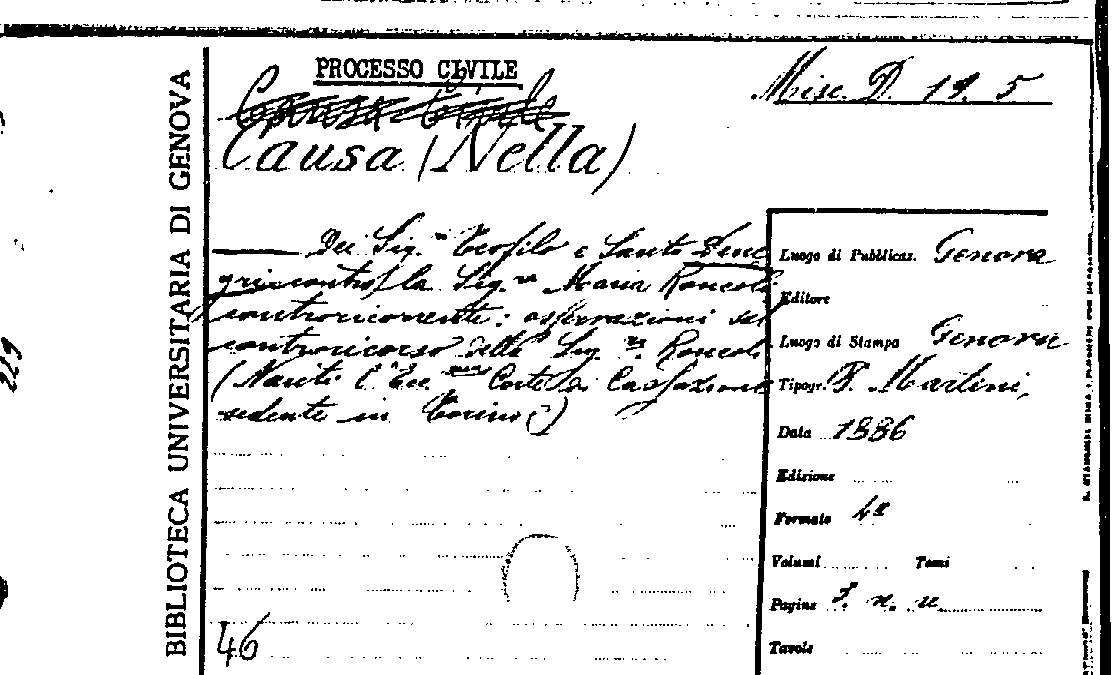 BIBLIOTECA UNIVERSITARIA DI GENOVA
PROCESSO CIVILE
Causa Civile
Misc. D. 19. 5
Causa (Nella)
Dei Sig.ri Teofilo e Santo
contro la Sig.ra Maria Roncoli
controricorrente: osservazioni sul
controricorso della Sig.ra Roncoli
(Nanti l'Ecc.ma Corte di Cassazione
sedente in Torino)
46
Luogo di Pubblicaz. Genova
Editore
Luogo di Stampa Genova
Tipogr. P. Martini,
Data 1886
Edizione
Formato 4º
Volumi Tomi
Pagine F. n. n
Tavole
229